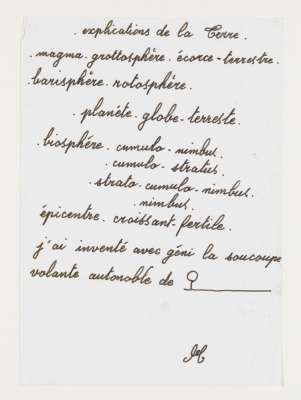 . explications de la Terre .
. magma . grottosphère . écorce - terrestre .
barisphère . rotosphère .
. planète . globe - terreste .
. biosphére . cumulo - nimbus .
. cumulo - stratus .
. strato - cumulo - nimbus .
. nimbus .
épicentre . croissant - fertile .
j'ai inventé avec géni la soucoupe
volante autonoble de